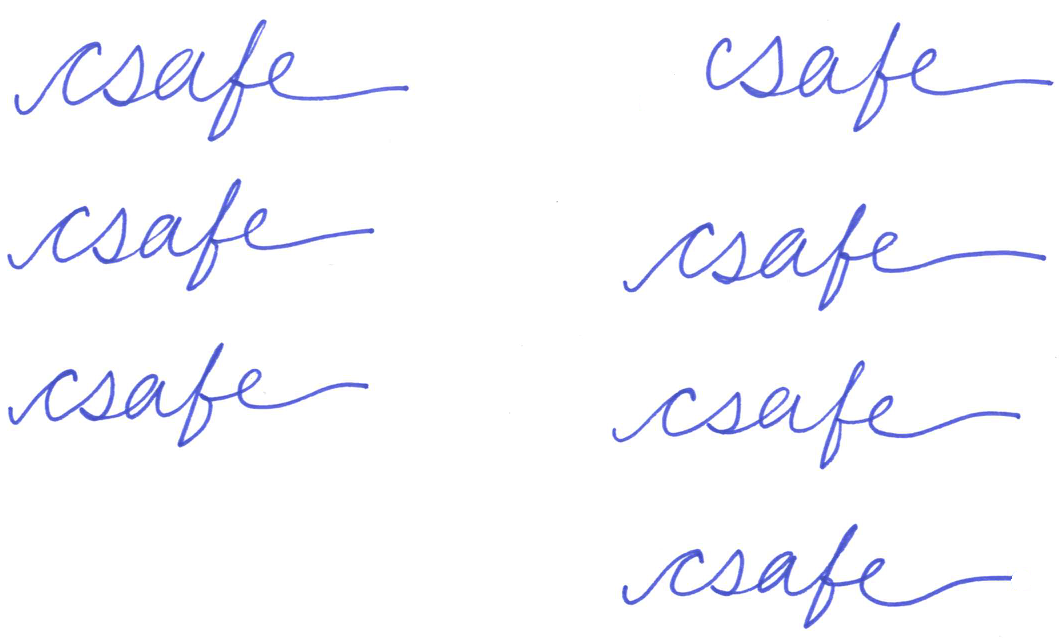 csafe
csafe
csafe
csafe
csafe
csafe
csafe